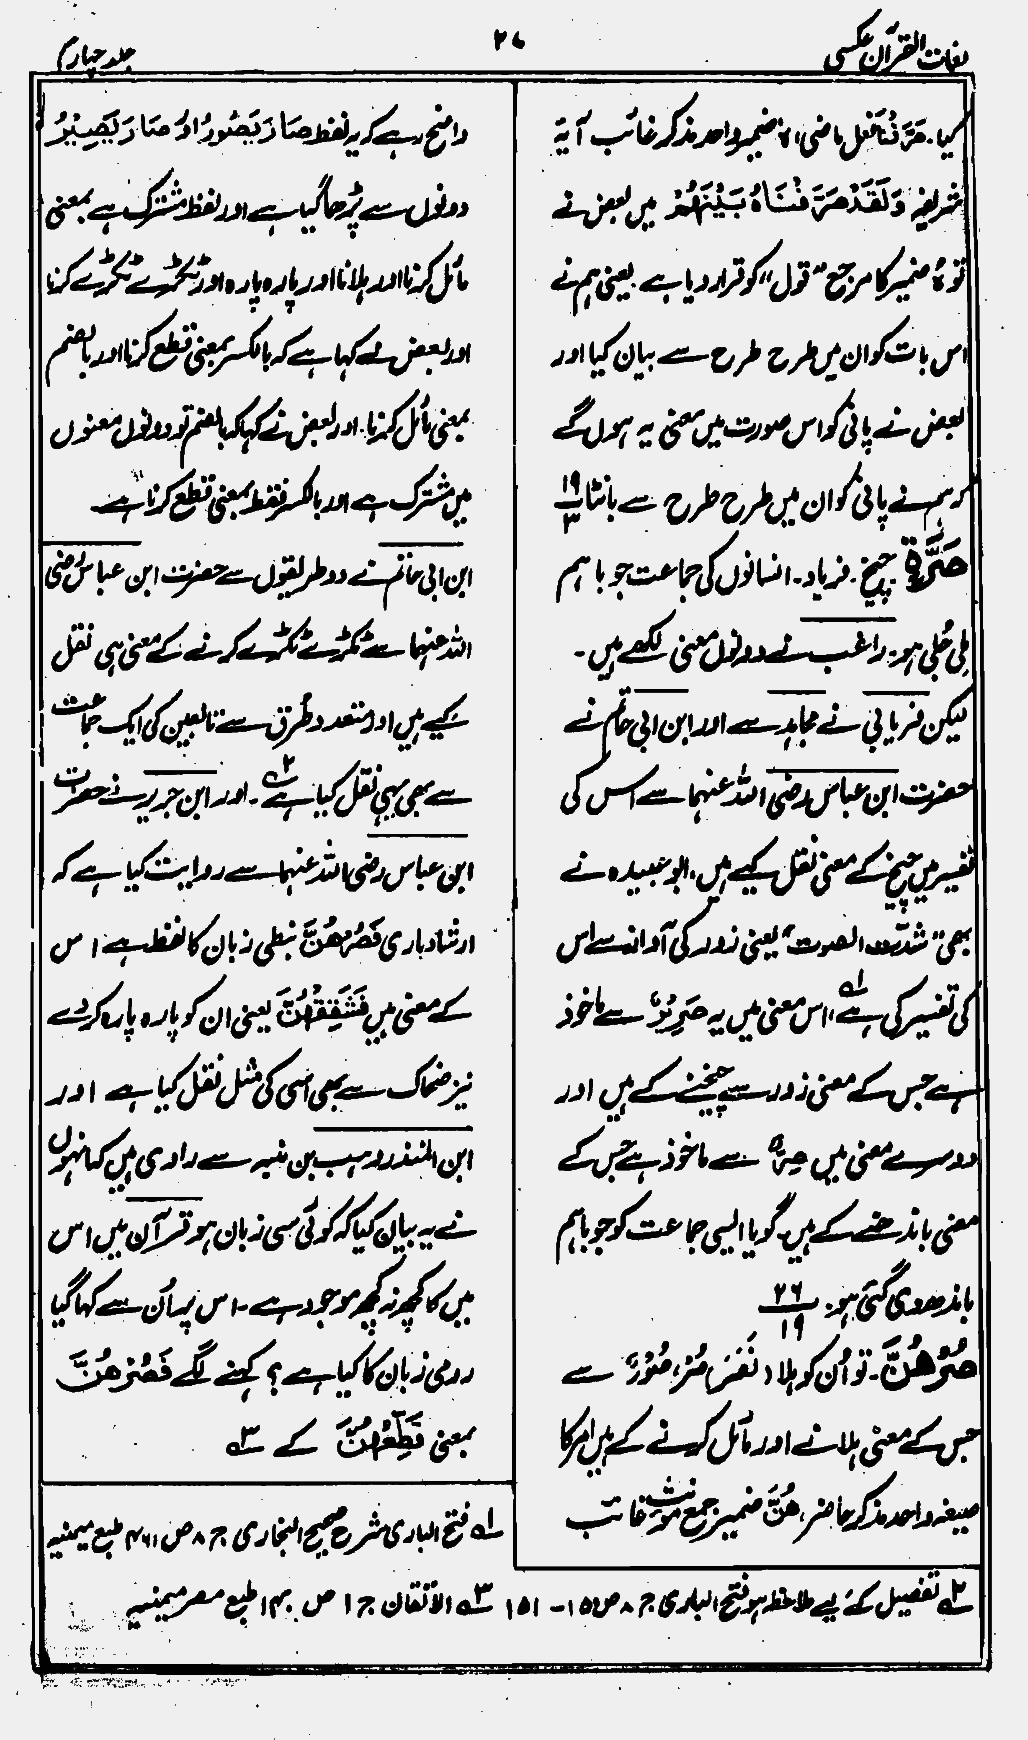 لغات القرآن عکسی
۲۷
جلد چہارم
کیا۔ صَرَّفْنَا فعل ماضی، ہٗ ضمیر واحد مذکر غائب آیۂ
شریفہ وَلَقَدْ صَرَّفْنَاہُ بَیْنَہُمْ میں بعض نے
توہٗ ضمیر کا مرجع "قول" کو قرار دیا ہے یعنی ہم نے
اس بات کو ان میں طرح طرح سے بیان کیا اور
بعض نے پانی کو اس صورت میں معنی یہ ہوں گے
کہ ہم نے پانی کو ان میں طرح طرح سے بانٹا ۱۹/۳
صَرَّۃٍ چیخ۔ فریاد۔ انسانوں کی جماعت جو باہم
ملی جُلی ہو۔ راغب نے دونوں معنی لکھے ہیں۔
لیکن فریابی نے مجاہد سے اور ابن ابی حاتم نے
حضرت ابن عباس رضی اللہ عنہما سے اس کی
تفسیر میں چیخ کے معنی نقل کیے ہیں، ابو عبیدہ نے
بھی "شدّت الصوت" یعنی زور کی آواز سے اس
کی تفسیر کی ہے ۱؎، اس معنی میں یہ صَرِیْرٌ سے ماخوذ
ہے جس کے معنی زور سے چیخنے کے ہیں اور
دوسرے معنی میں صِرَّہ سے ماخوذ ہے جس کے
معنی باندھنے کے ہیں۔ گویا ایسی جماعت کو جو باہم
باندھ دی گئی ہو۔ ۲۶/۱۹
صُرْھُنَّ۔ تو اُن کو ہلا (نَصَرَ) صُرْ، صَوْرٌ سے
جس کے معنی ہلانے اور مائل کرنے کے ہیں امر کا
صیغہ واحد مذکر حاضر، ھُنَّ ضمیر جمع مؤنث غائب
واضح رہے کہ یہ لفظ صَارَ یَصُوْرُ اور صَارَ یَصِیْرُ
دونوں سے پڑھا گیا ہے اور لفظ مشترک ہے بمعنی
مائل کرنا اور ہلانا اور پارہ پارہ اور ٹکڑے ٹکڑے کرنا
اور بعض نے کہا ہے کہ بالکسر بمعنی قطع کرنا اور بالضم
بمعنی مائل کرنا۔ اور بعض نے کہا کہ بالضم تو دونوں معنوں
میں مشترک ہے اور بالکسر فقط بمعنی قطع کرنا ہے
ابن ابی حاتم نے دو طریقوں سے حضرت ابن عباس رضی
اللہ عنہما سے ٹکڑے ٹکڑے کرنے کے معنی ہی نقل
کیے ہیں اور متعدد طُرق سے تابعین کی ایک جماعت
سے بھی یہی نقل کیا ہے ۲؎۔ اور ابن جریر نے حضرت
ابن عباس رضی اللہ عنہما سے روایت کیا ہے کہ
ارشاد باری فَصُرْھُنَّ نبطی زبان کا لفظ ہے اس
کے معنی ہیں فَشَقِّقْھُنَّ یعنی ان کو پارہ پارہ کر دے
نیز ضحاک سے بھی اسی کی مثل نقل کیا ہے اور
ابن المنذر وہب بن منبہ سے راوی ہیں کہ انہوں
نے یہ بیان کیا کہ کوئی سی زبان ہو قرآن میں اس
میں کا کچھ نہ کچھ موجود ہے۔ اس پر اُن سے کہا گیا
رومی زبان کا کیا ہے؟ کہنے لگے فَصُرْھُنَّ
بمعنی قَطِّعْھُنَّ کے ۳؎
۱؎ فتح الباری شرح صحیح البخاری ج ۸ ص ۴۶۱ طبع میمنیہ
۲؎ تفصیل کے لیے ملاحظہ ہو فتح الباری ج ۸ ص ۱۵۰ - ۱۵۱ ۳؎ الاتقان ج ۱ ص ۱۴۰ طبع مصر میمنیہ